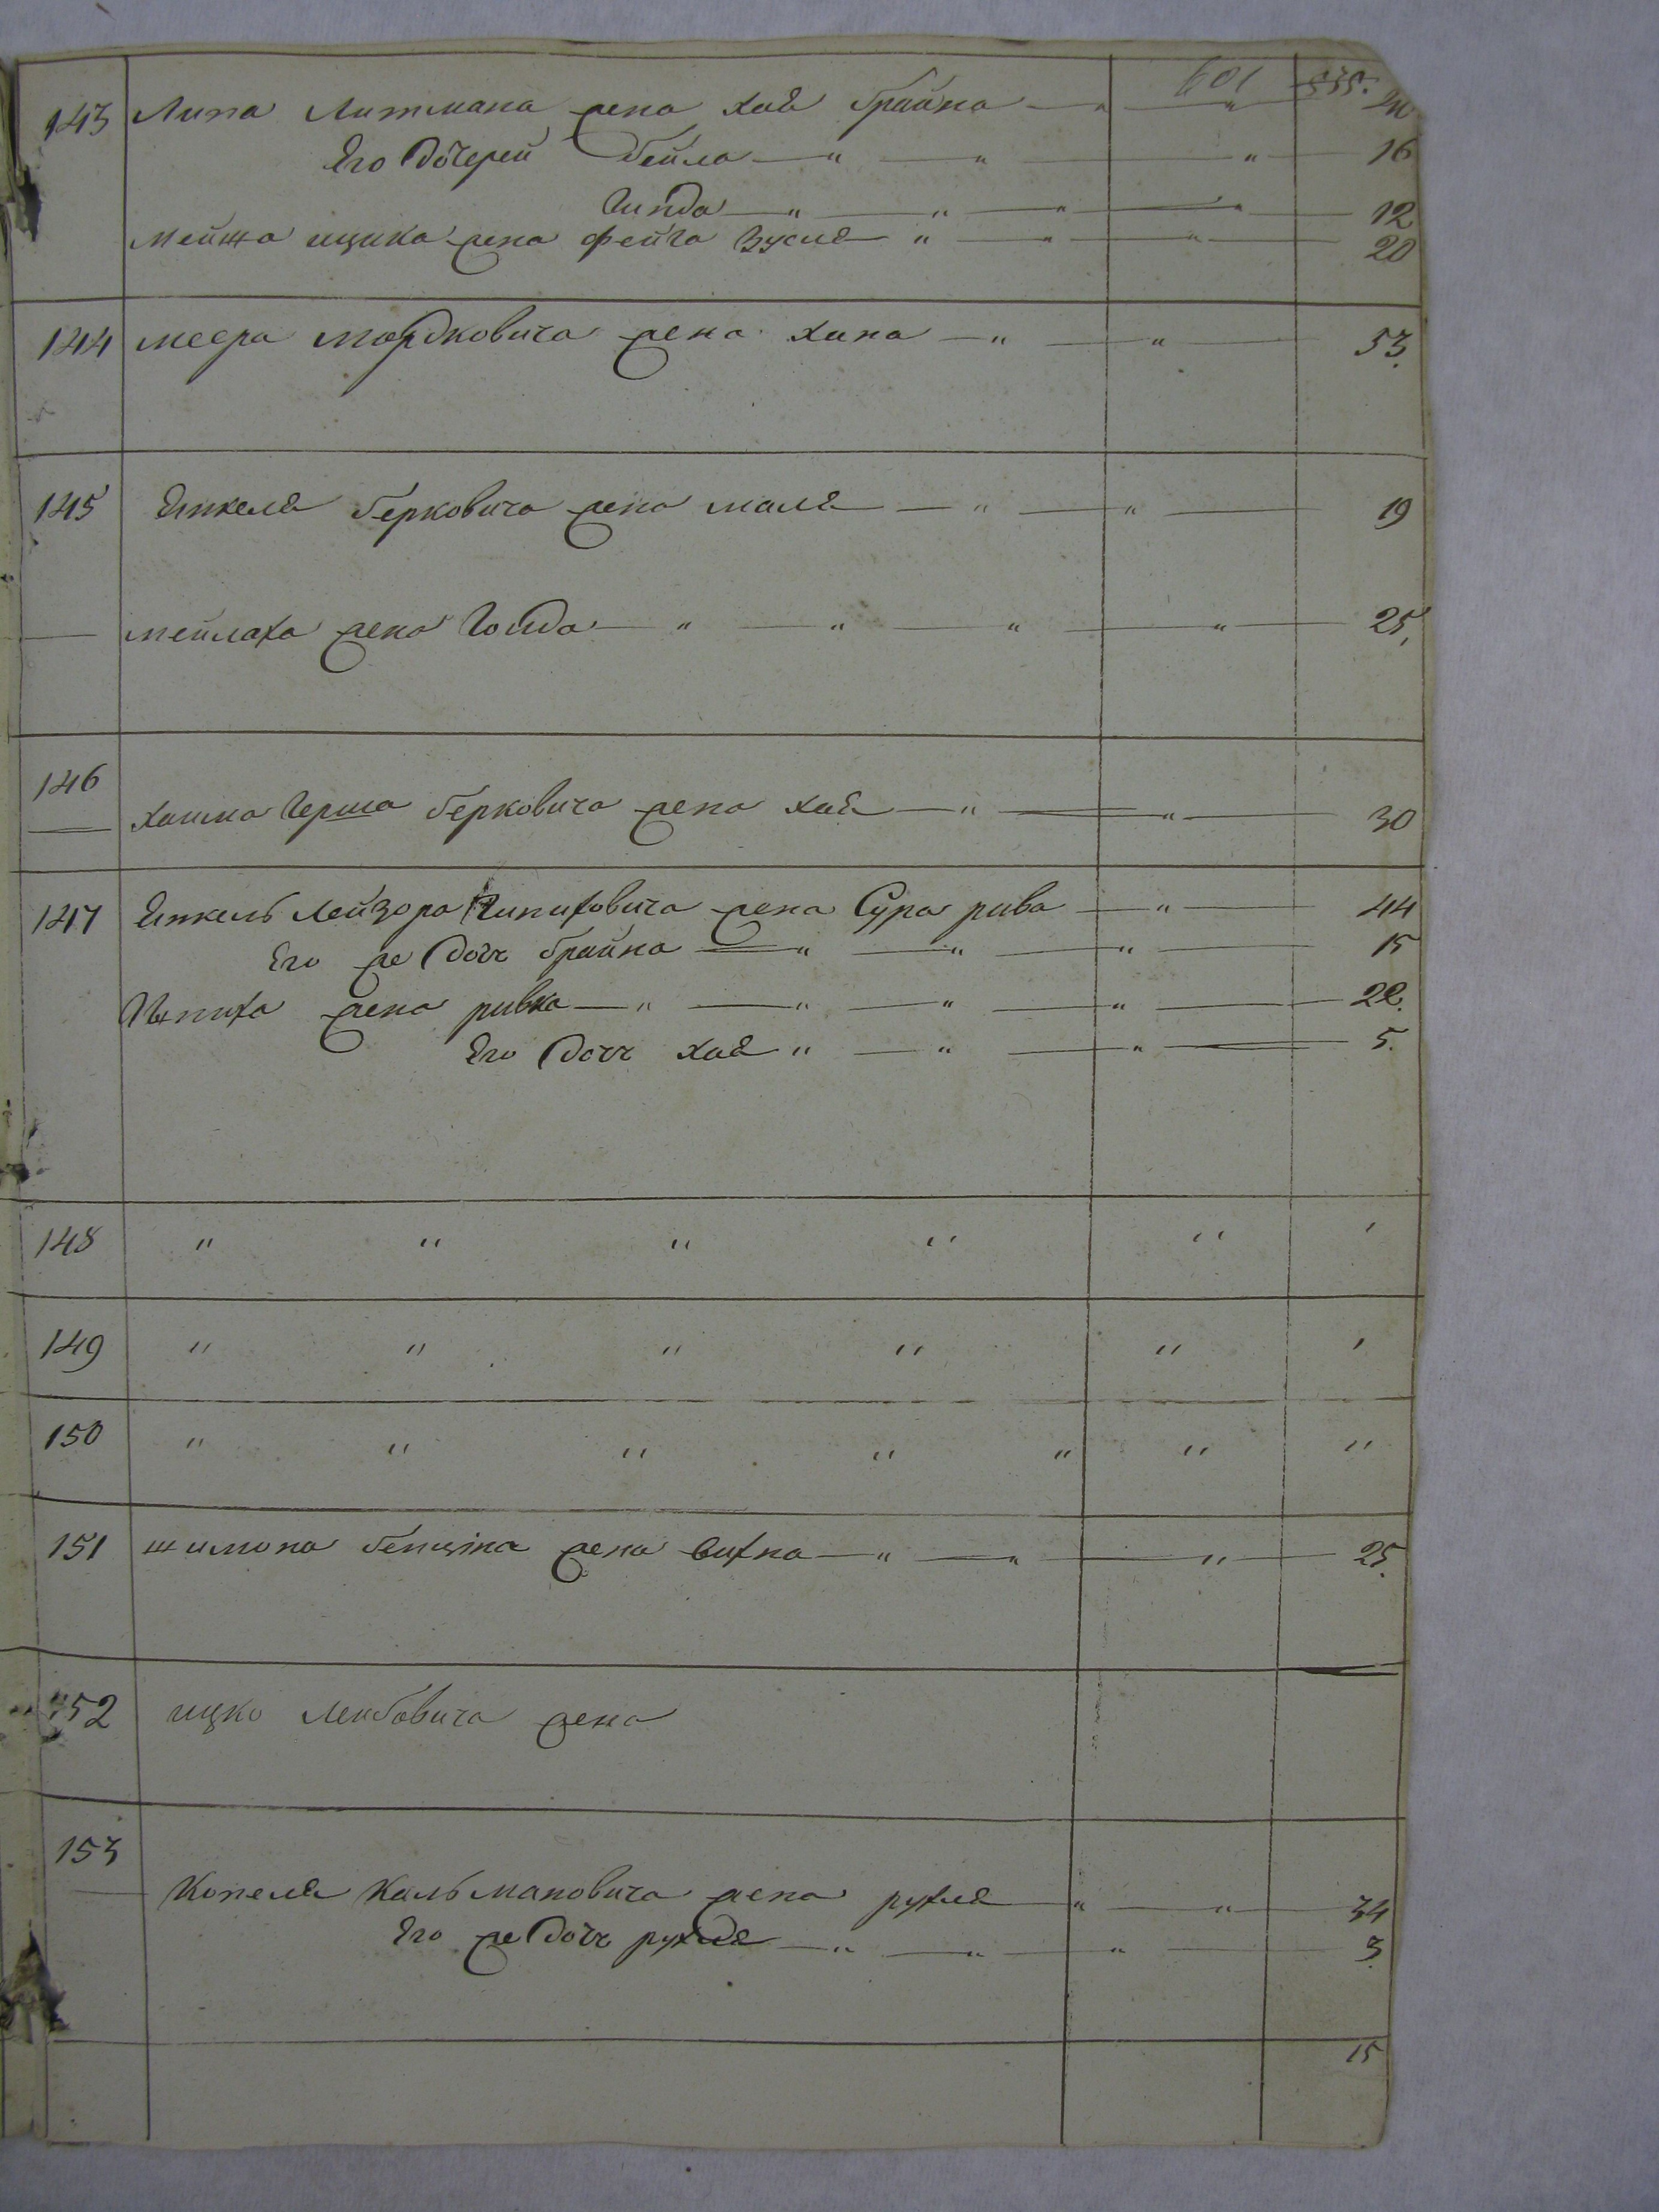 601 535.
143 Липа Литмана жена хая брайна — " — " 
Его дочерей бейла — " — " — " — 16
Гинда — " — " — " — " — 12
Мейша ицика жена фейга зусля — " — " — " — 20
144 меера мордковича жена хана — " — " — 53.
145 Янкеля берковича жена маля — " — " — 19
мейлаха жена Голда — " — " — " — " — 25,
146
хаима Герша берковича жена хая — " — " — 30
147 Янкель Лейзора Пинихович​а жена Сура рива — " — 44
Его же дочь брайна — " — " — " — 15
Пиниха жена ривка — " — " — " — " — 22.
Его дочь хая " — " — " — 5.
148 " " " " " '
149 " " " " " '
150 " " " " " " "
151 шимона бенциона жена вихна — " — " — " — 25.
152 ицко Лейбовича жена
153
Копеля Кальмановича жена рухля — " — " — 34
Его же дочь рухля — " — " — " — 3.
15